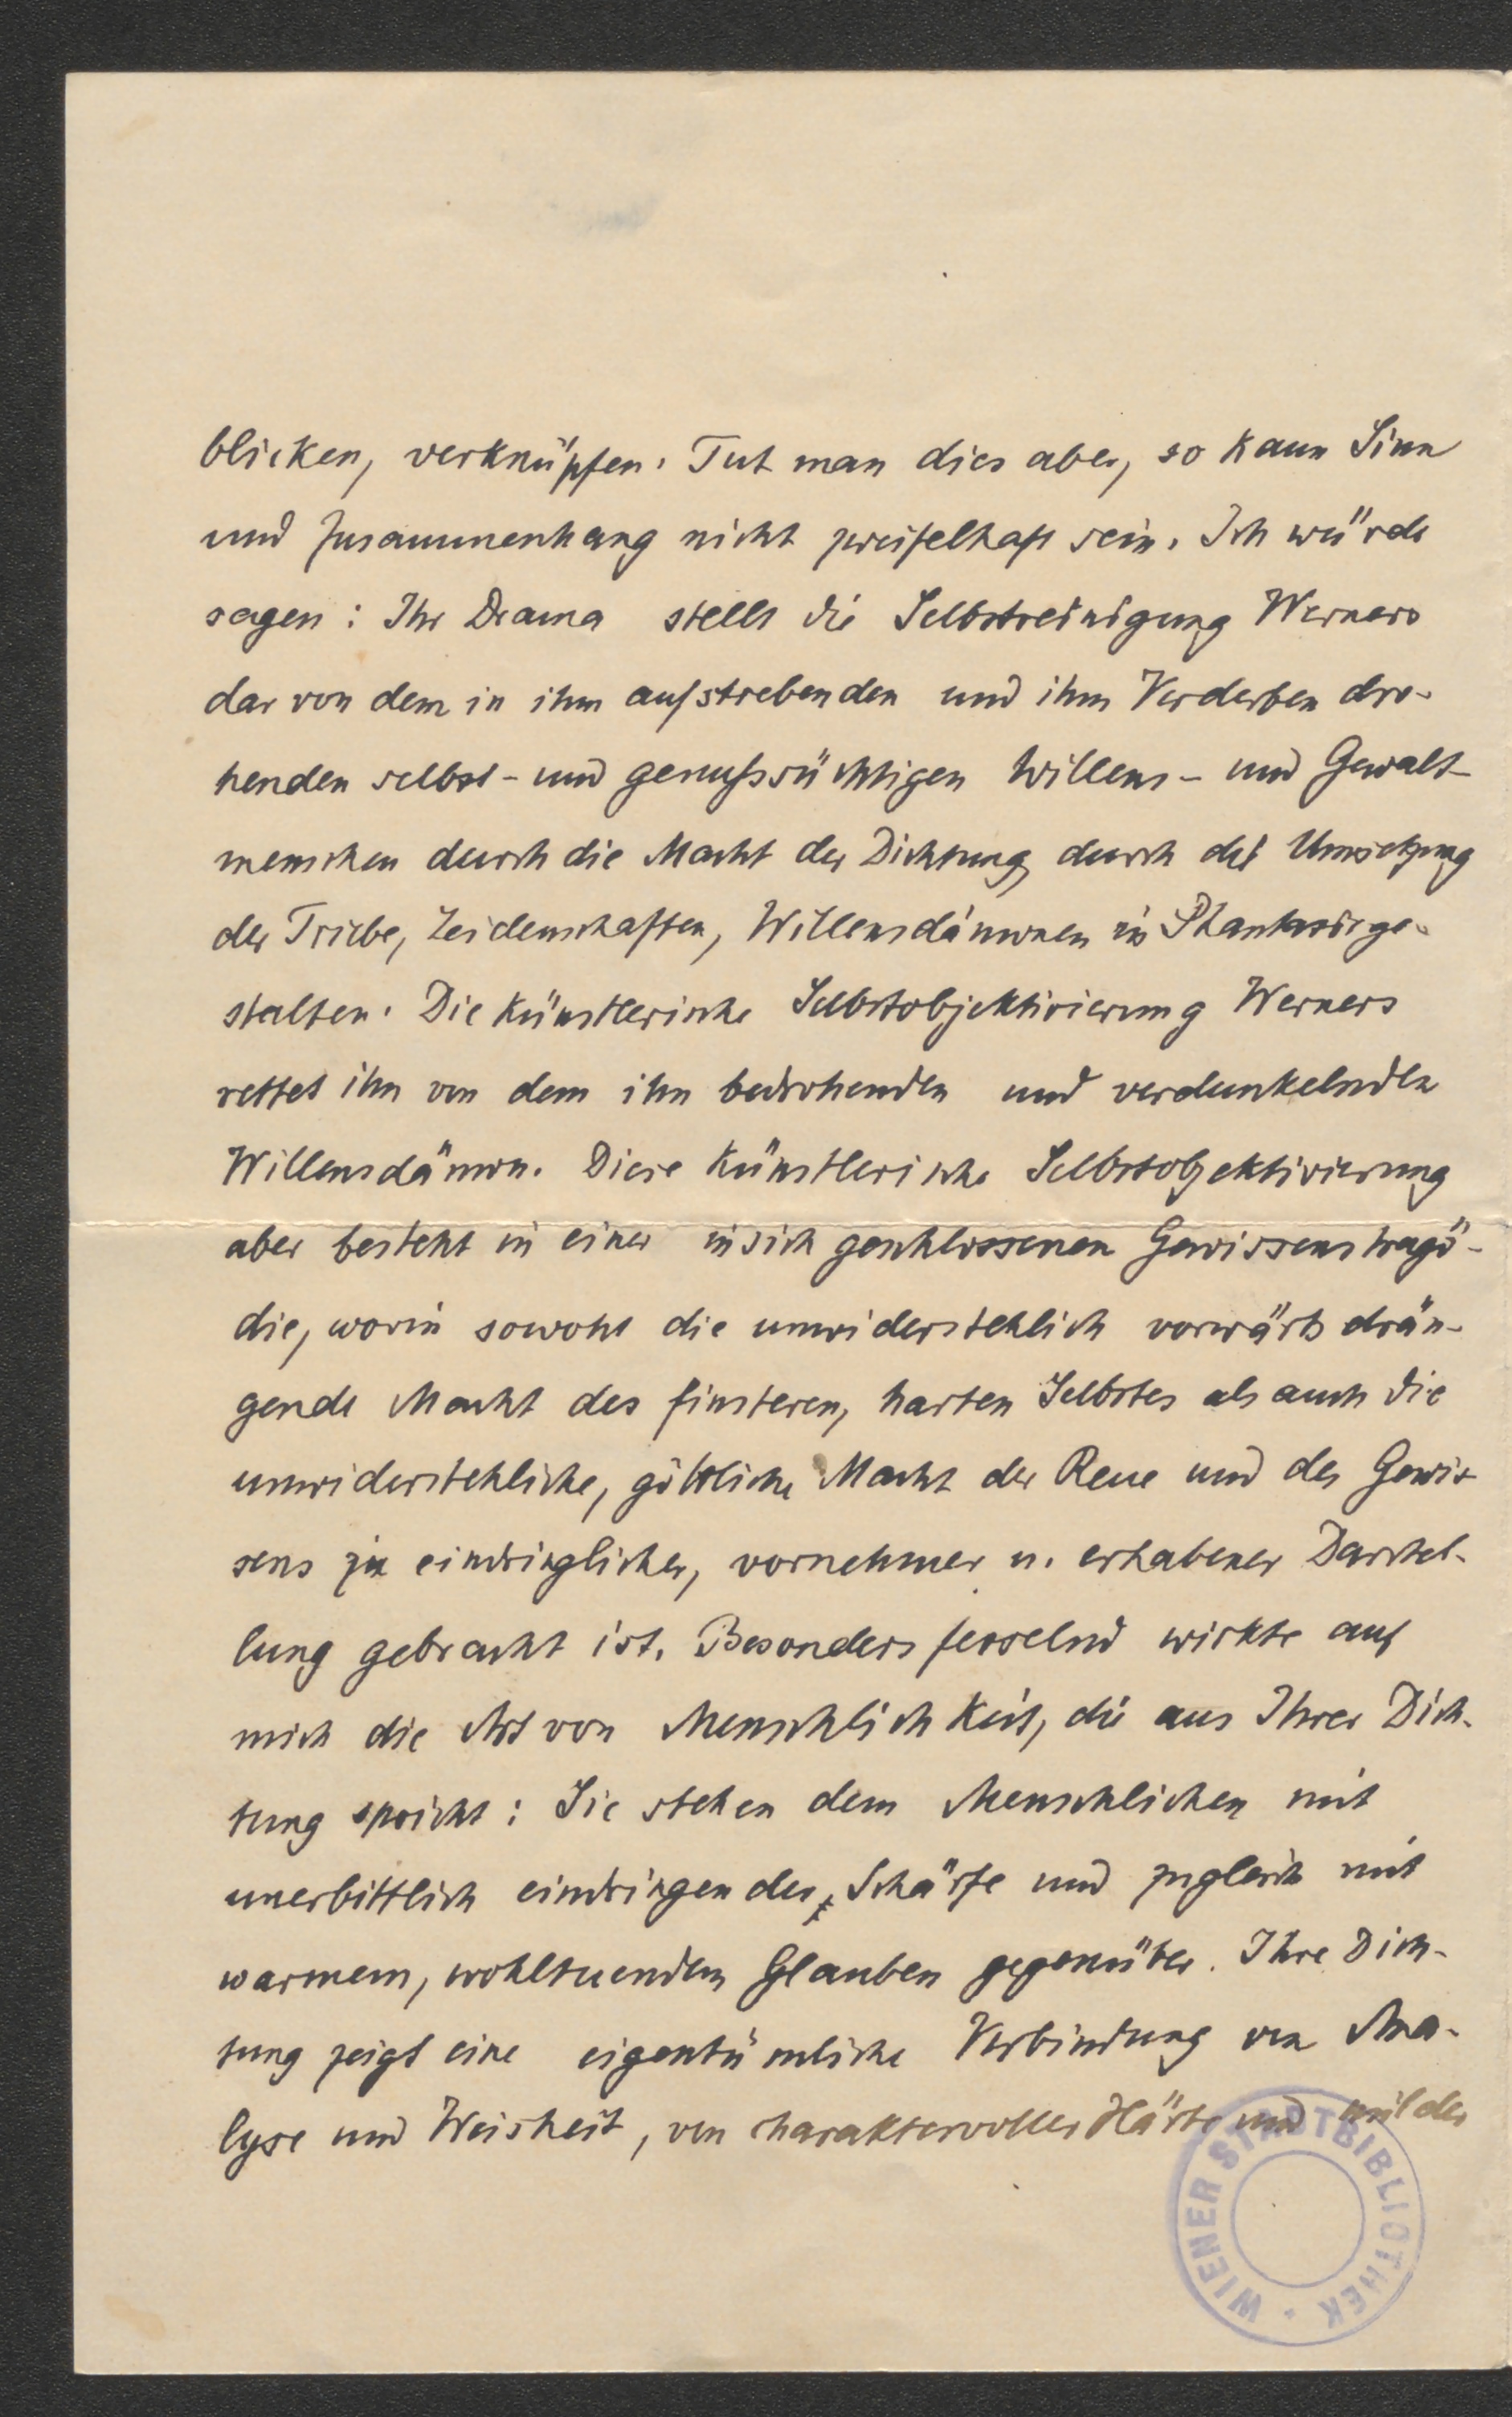 blicken, verknüpfen. Tut man dies aber, so kann Sinn
und Zusammenhang nicht zweifelhaft sein. Ich würde
sagen: Ihr Drama stellt die Selbstreinigung Werners
dar von dem in ihm aufstrebenden und ihm Verderben dro-
henden selbst- und genußsüchtigen Willens- und Gewalt-
menschen durch die Macht der Dichtung, durch die Umsetzung
der Triebe, Leidenschaften, Willensdämonen in Phantasiege-
stalten. Die künstlerische Selbstobjektivierung Werners
rettet ihn von dem ihn bedrohenden und verdunkelnden
Willensdämon. Diese künstlerische Selbstobjektivierung
aber besteht in einer in sich geschlossenen Gewissenstragö-
die, worin sowohl die unwiderstehlich vorwärts drän-
gende Macht des finsteren, harten Selbstes als auch die
unwiderstehliche, göttliche Macht der Reue und des Gewis-
sens zu eindringlicher, vornehmer u. erhabener Darstel-
lung gebracht ist. Besonders fesselnd wirkte auf
mich die Art von Menschlichkeit, die aus Ihrer Dich-
tung spricht: Sie stehen dem Menschlichen mit
unerbittlich eindringender Schärfe und zugleich mit
warmem, wohltuendem Glauben gegenüber. Ihre Dich-
tung zeigt eine eigentümliche Verbindung von Ana-
lyse und Weisheit, von charaktervoller Härte und milder
WIENER STADTBIBLIOTHEK